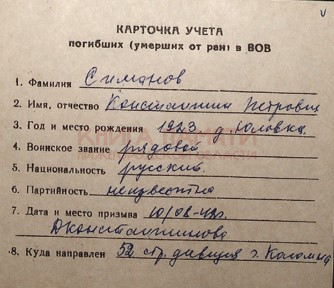 КАРТОЧКА УЧЕТА
погибших (умерших от ран) в ВОВ
1. Фамилия Симанов
2. Имя, отчество Константин Петрович
3. Год и место рождения 1923 д. Юловка
4. Воинское звание рядовой
5. Национальность русский
6. Партийность неизвестно
7. Дата и место призыва 10/08-42г.
Д Константиново
8. Куда направлен 52 стр. дивизия г. Коломна